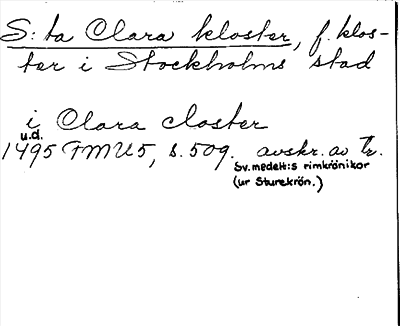 S:ta Clara kloster, f. klos-
ter i Stockholms stad
i Clara closter
u.d.
1495 FMU5, s. 509. avskr. av Tr.
Sv. medelt:s rimkrönikor
(ur Sturekrön.)